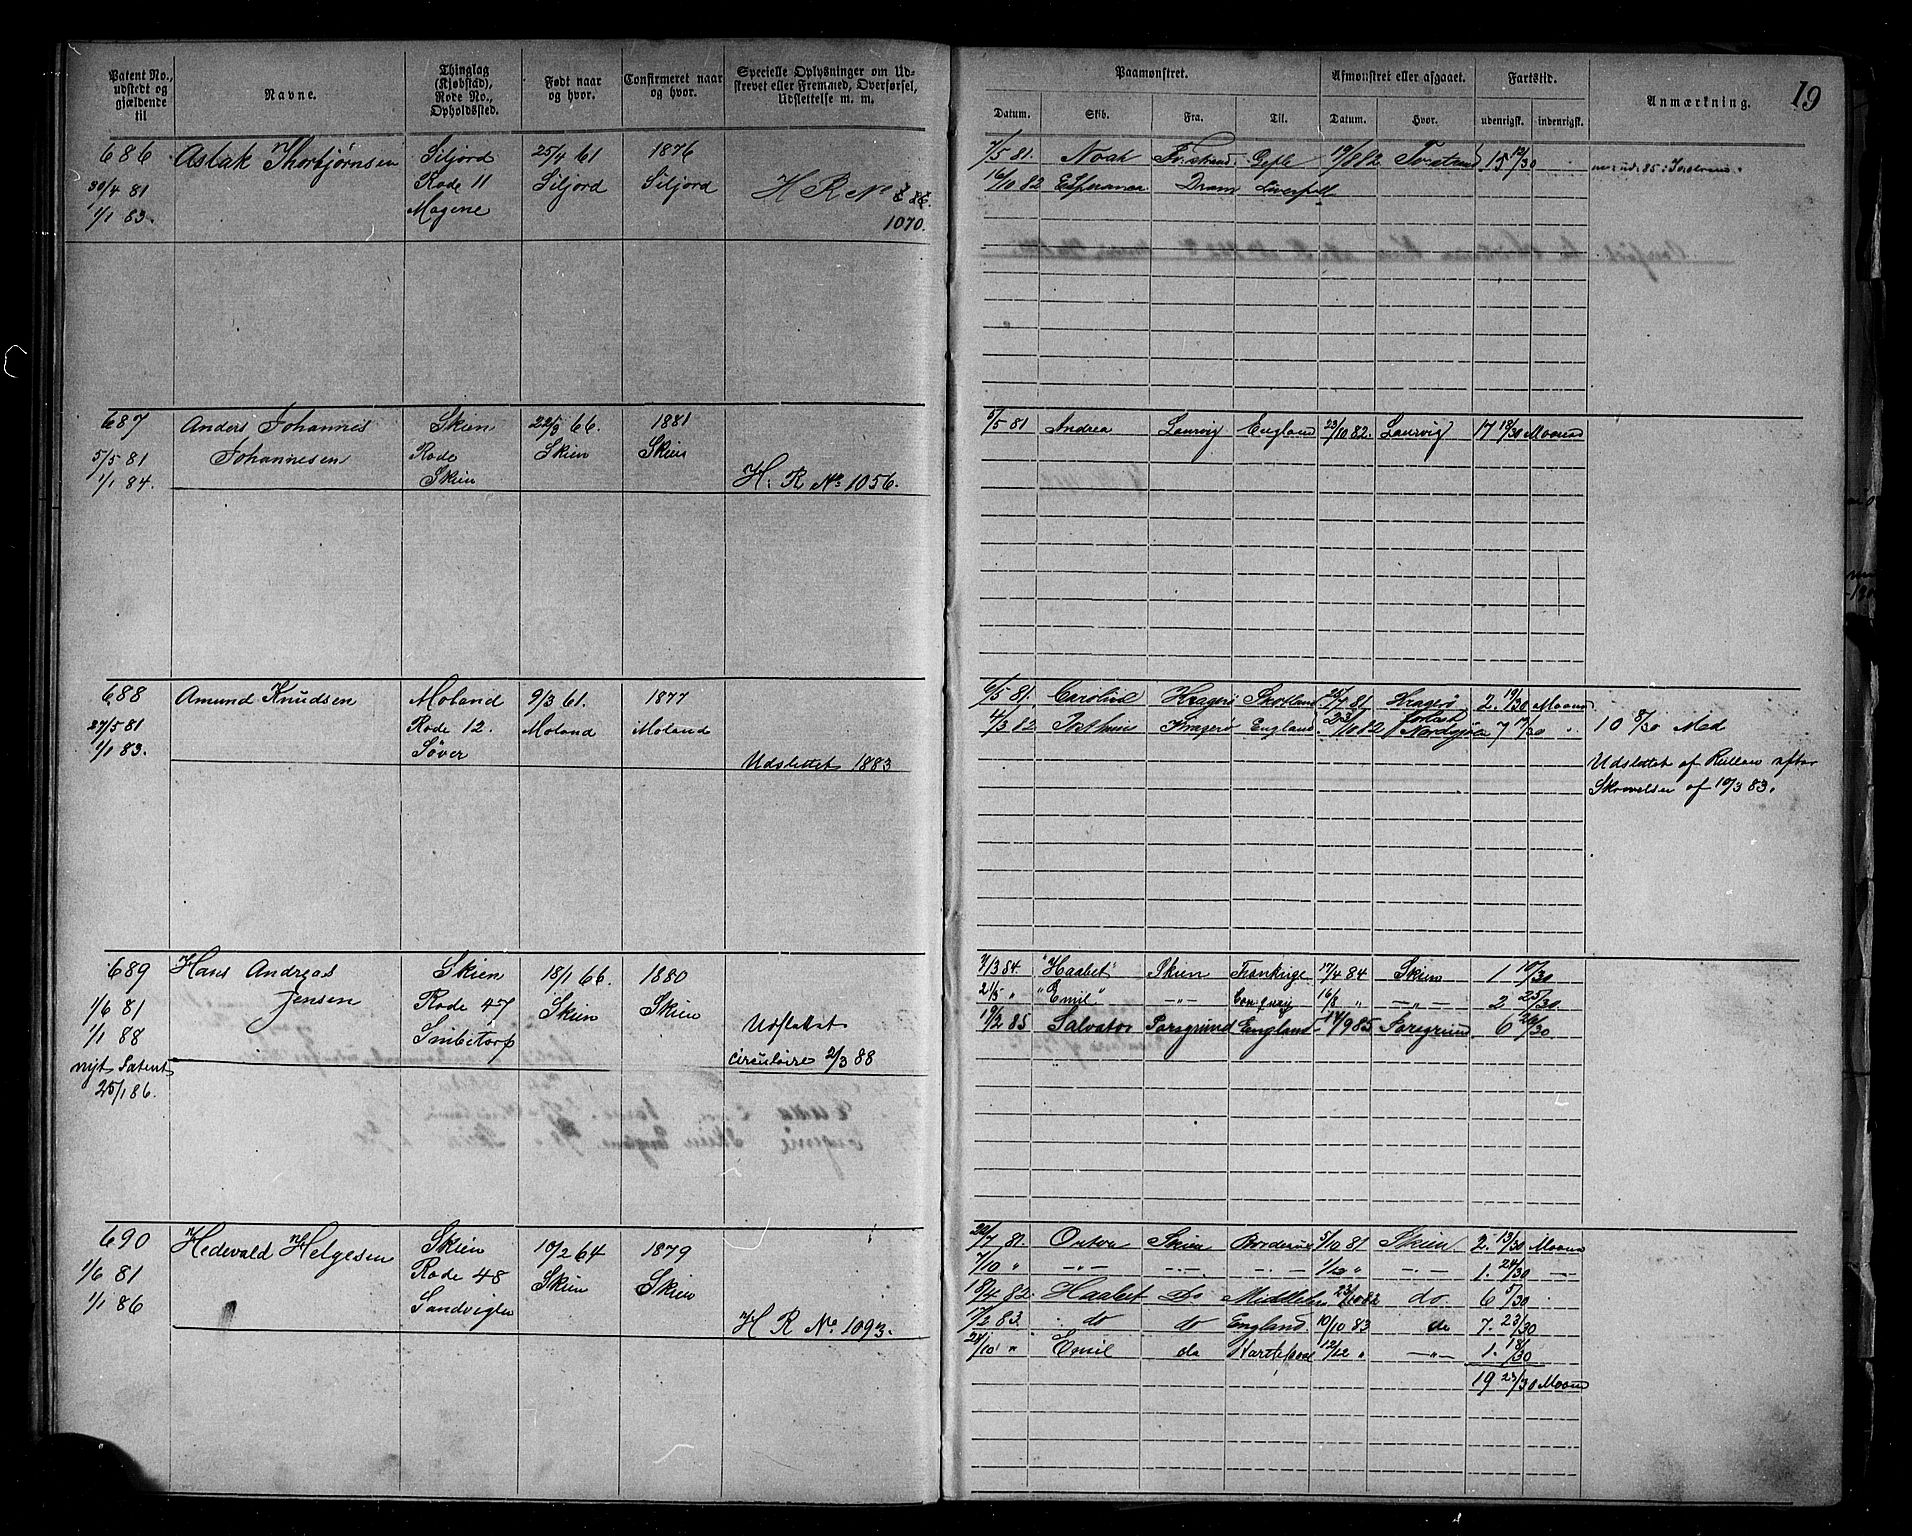 Patent No., udstedt og gjældende til
Navne.
Thinglag (Kjøbstad), Rode No., Opholdssted.
Født naar og hvor.
Confirmeret naar og hvor.
Specielle Oplysninger om Udskrevet eller Fremmed, Overførsel, Udslettelse m. m.
Paamønstret.
Afmønstret eller afgaaet.
Fartstid.
Anmærkning.
19
Datum. Skib. Fra. Til. Datum. Hvor. udenrigsk. indenrigsk.
686 Aslak Thorbjørnsen Siljord 25/4 61 1876
30/4 81 Rode 11 Siljord Siljord
1/1 83. Mogene H R No
1070.
7/5 81. Noah Gefle 19/8 82 15 12/30
16/10 82 Esperance Dram Liverpoll
687 Anders Johannes Skien 22/9 66. 1881
5/5 81 Johannesen Rode Skien Skien
1/1 84. Skien H. R No 1056.
5/5 81 Andrea Laurvig England 23/10 82. Laurvig 17 18/30 Maaned
688 Amund Knudsen Moland 9/3 61. 1877
27/5 81 Rode 12. Moland Moland
1/1 83. Søver Udslettet 1883
6/5 81. Caroline Kragerø Skotland 25/7 81. Kragerø 2. 19/30 Maaned
4/3 82 Kragerø England 23/10 82 forlist Nordsjøen 7 17/30 "
10 8/30 Med
Udslettet af Rullen efter
Skrivelse af 10/3 83.
689 Hans Andreas Skien 18/1 66. 1880
1/6 81 Jensen Rode 47 Skien Skien
1/1 88
nyt Patent
25/1 86.
circulaire 2/3 88
7/3 84. "Haabet" Skien Frankrige 17/4 84 Skien 1 10/30
21/5 " "Emil" —"— 16/8 " —"— 2 25/30
19/2 85 Salvator Porsgrund England 17/9 85 Porsgrund 6 28/30
690 Hedevald Helgesen Skien 10/2 64 1879
1/6 81 Rode 48 Skien Skien
1/1 86 Sandvigen H R No. 1093.
22/7 81. Skien 5/10 81 Skien 2. 13/30 Maaned
7/10 " —"— —"— —"— 1/12 " —"— 1. 24/30 —
18/4 82. Haabet Do 23/10 82 do. 6 5/30
17/2 83. do do England 10/10 83 do 7. 23/30
24/10 " Emil do Hartlepool 12/12 " —"— 1. 18/30
19 23/30 Maaned